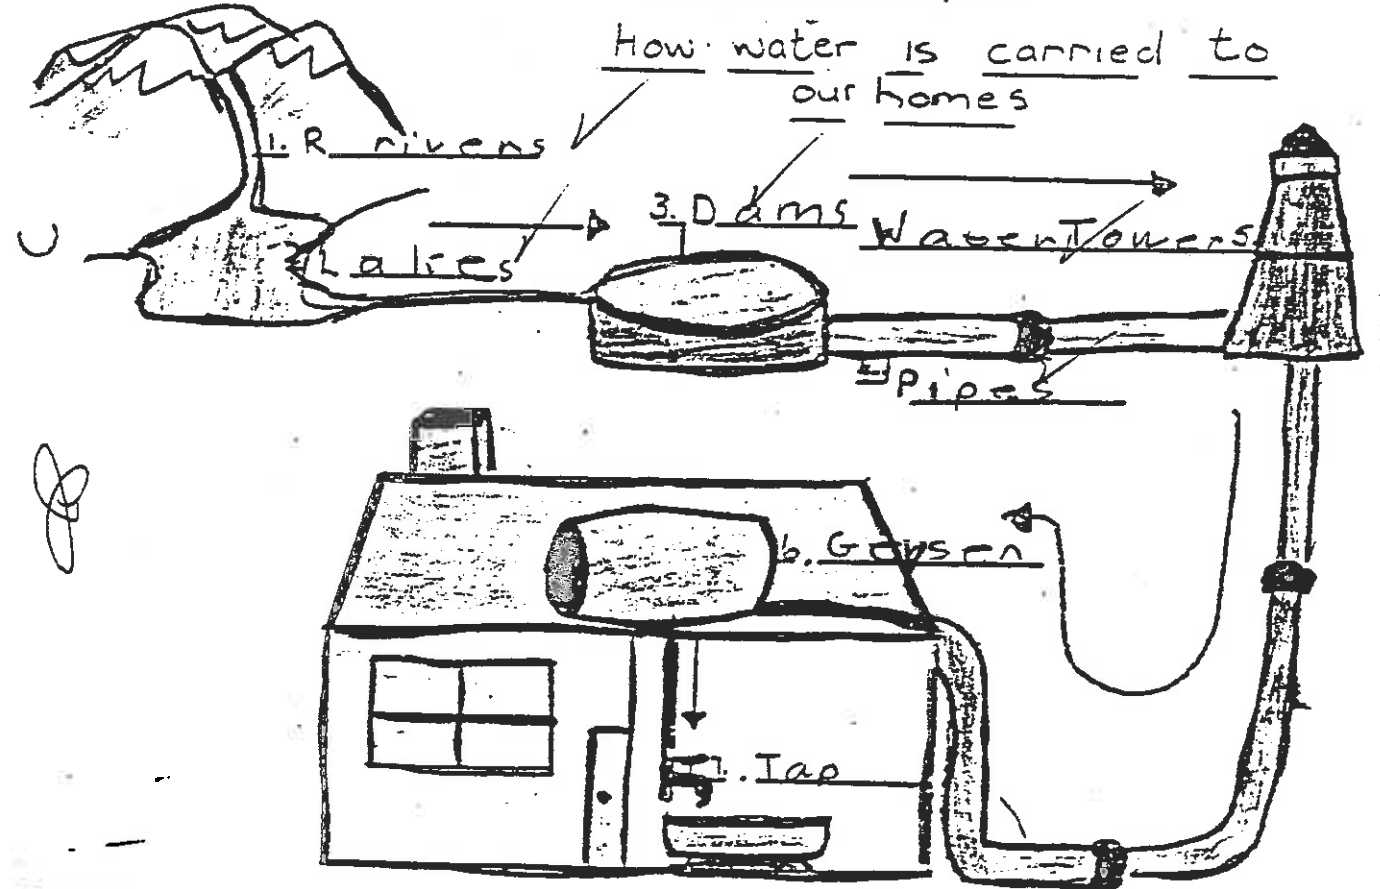 How water is carried to
our homes
1. R rivers
Lakes
3. Dams
Water Towers
Pipes
6. Geyser
7. Tap